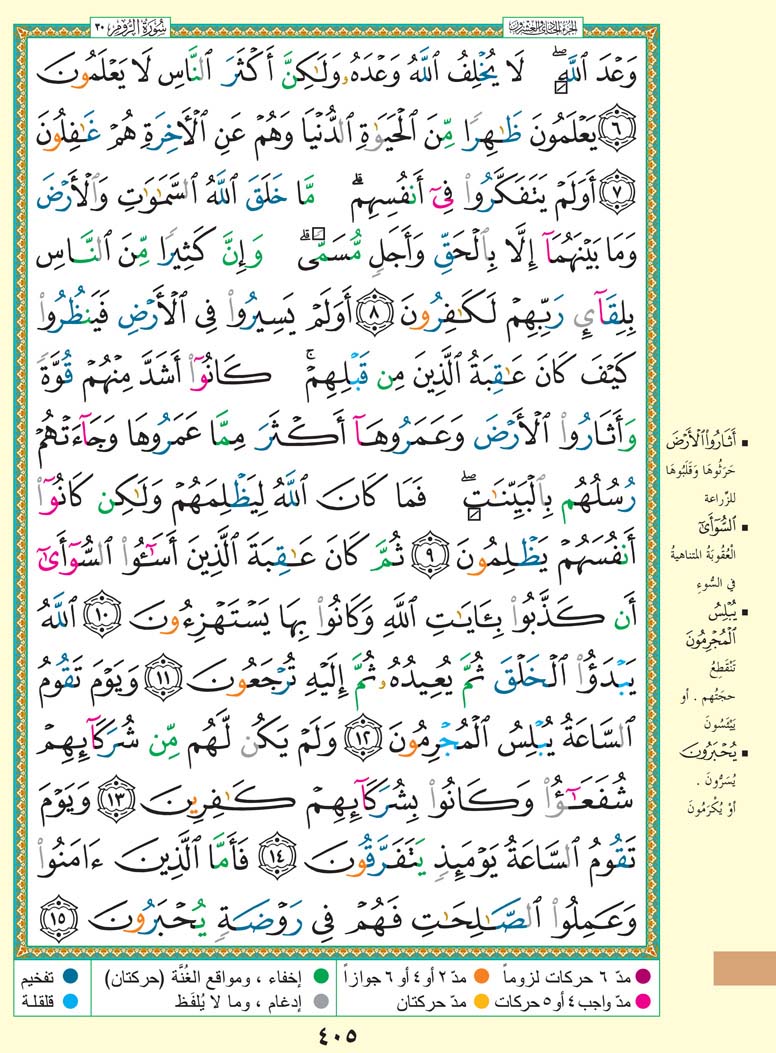 سُورَةُ الرُّومِ ٣٠
الجزء الحادي والعشرون
وَعْدَ ٱللَّهِۖ لَا يُخْلِفُ ٱللَّهُ وَعْدَهُۥ وَلَٰكِنَّ أَكْثَرَ ٱلنَّاسِ لَا يَعْلَمُونَ
٦ يَعْلَمُونَ ظَٰهِرًا مِّنَ ٱلْحَيَوٰةِ ٱلدُّنْيَا وَهُمْ عَنِ ٱلْأَخِرَةِ هُمْ غَٰفِلُونَ
٧ أَوَلَمْ يَتَفَكَّرُوا۟ فِىٓ أَنفُسِهِمۗ مَّا خَلَقَ ٱللَّهُ ٱلسَّمَٰوَٰتِ وَٱلْأَرْضَ
وَمَا بَيْنَهُمَآ إِلَّا بِٱلْحَقِّ وَأَجَلٍ مُّسَمًّىۗ وَإِنَّ كَثِيرًا مِّنَ ٱلنَّاسِ
بِلِقَآئِ رَبِّهِمْ لَكَٰفِرُونَ ٨ أَوَلَمْ يَسِيرُوا۟ فِى ٱلْأَرْضِ فَيَنظُرُوا۟
كَيْفَ كَانَ عَٰقِبَةُ ٱلَّذِينَ مِن قَبْلِهِمْۚ كَانُوٓا۟ أَشَدَّ مِنْهُمْ قُوَّةً
وَأَثَارُوا۟ ٱلْأَرْضَ وَعَمَرُوهَآ أَكْثَرَ مِمَّا عَمَرُوهَا وَجَآءَتْهُمْ
رُسُلُهُم بِٱلْبَيِّنَٰتِۖ فَمَا كَانَ ٱللَّهُ لِيَظْلِمَهُمْ وَلَٰكِن كَانُوٓا۟
أَنفُسَهُمْ يَظْلِمُونَ ٩ ثُمَّ كَانَ عَٰقِبَةَ ٱلَّذِينَ أَسَٰٓـُٔوا۟ ٱلسُّوٓأَىٰٓ
أَن كَذَّبُوا۟ بِـَٔايَٰتِ ٱللَّهِ وَكَانُوا۟ بِهَا يَسْتَهْزِءُونَ ١٠ ٱللَّهُ
يَبْدَؤُا۟ ٱلْخَلْقَ ثُمَّ يُعِيدُهُۥ ثُمَّ إِلَيْهِ تُرْجَعُونَ ١١ وَيَوْمَ تَقُومُ
ٱلسَّاعَةُ يُبْلِسُ ٱلْمُجْرِمُونَ ١٢ وَلَمْ يَكُن لَّهُم مِّن شُرَكَآئِهِمْ
شُفَعَٰٓؤُا۟ وَكَانُوا۟ بِشُرَكَآئِهِمْ كَٰفِرِينَ ١٣ وَيَوْمَ
تَقُومُ ٱلسَّاعَةُ يَوْمَئِذٍ يَتَفَرَّقُونَ ١٤ فَأَمَّا ٱلَّذِينَ ءَامَنُوا۟
وَعَمِلُوا۟ ٱلصَّٰلِحَٰتِ فَهُمْ فِى رَوْضَةٍ يُحْبَرُونَ ١٥
▪ أَثَارُوا۟ ٱلْأَرْضَ
حَرَثُوهَا وَقَلَبُوهَا
للزّراعة
▪ ٱلسُّوٓأَىٰٓ
الْعُقُوبَةُ المتناهيةُ
في السُّوءِ
▪ يُبْلِسُ
ٱلْمُجْرِمُونَ
تَنْقَطِعُ
حجَتُهم . أو
يَيْئَسُونَ
▪ يُحْبَرُونَ
يُسَرُّونَ .
أوْ يُكْرَمُونَ
مدّ ٦ حركات لزوماً ● مدّ ٢ أو ٤ أو ٦ جوازاً ● إخفاء ، ومواقع الغُنَّة (حركتان) ● تفخيم
مدّ واجب ٤ أو ٥ حركات ● مدّ حركتان ● إدغام ، وما لا يُلفَظ ● قلقلة
٤٠٥